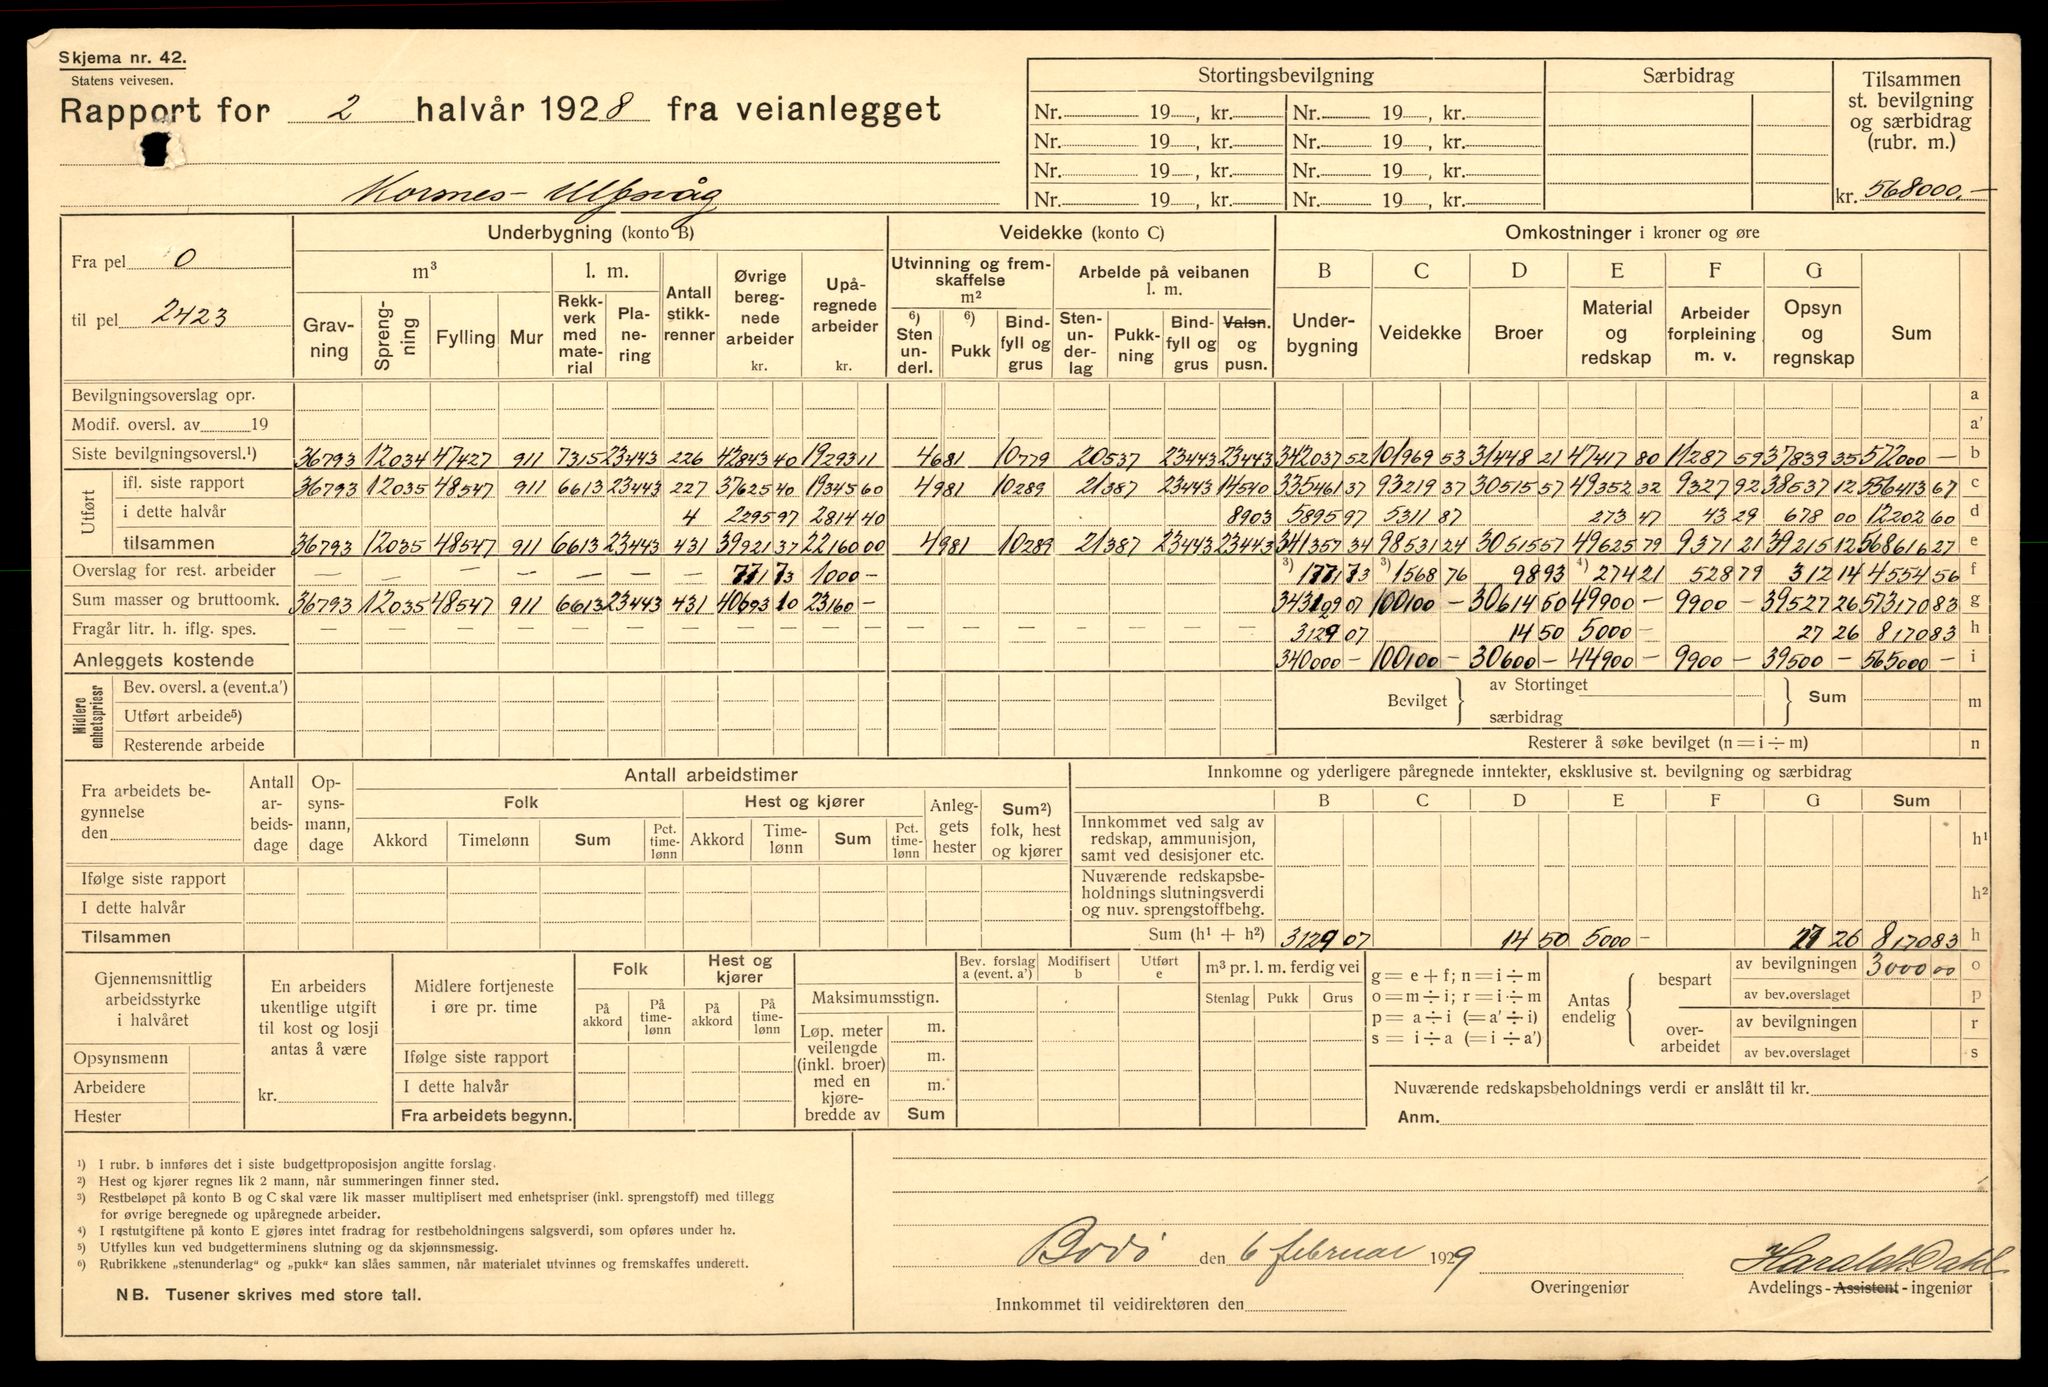 Skjema nr. 42.
Statens veivesen.
Rapport for 2 halvår 1928 fra veianlegget
Kormnes - Ulfsvåg
Stortingsbevilgning
Særbidrag
Tilsammen st. bevilgning og særbidrag (rubr. m.)
Nr. 19 , kr. Nr. 19 , kr.
Nr. 19 , kr. Nr. 19 , kr.
Nr. 19 , kr. Nr. 19 , kr.
Nr. 19 , kr. Nr. 19 , kr.
kr. 568000,-
Fra pel 0
til pel 2423
Underbygning (konto B)
Veidekke (konto C)
Omkostninger i kroner og øre
m³ l. m. Antall stikkrenner Øvrige beregnede arbeider kr. Upåregnede arbeider kr.
Utvinning og fremskaffelse m² Arbeide på veibanen l. m.
B C D E F G
Gravning Sprengning Fylling Mur Rekkverk med material Planering
⁶) Sten underl. ⁶) Pukk Bindfyll og grus Stenunderlag Pukkning Bindfyll og grus Valsn. og pusn.
Underbygning Veidekke Broer Material og redskap Arbeider forpleining m. v. Opsyn og regnskap Sum
Bevilgningsoverslag opr. a
Modif. oversl. av 19 a'
Siste bevilgningsoversl.¹) 36793 12034 47427 911 7315 23443 226 42843 40 19293 11 4681 10779 20537 23443 23443 342037 52 101969 53 31448 21 47417 80 11287 59 37839 35 572000 — b
Utført
ifl. siste rapport 36793 12035 48547 911 6613 23443 227 37625 40 19345 60 4981 10289 21387 23443 14540 335461 37 93219 37 30515 57 49352 32 9327 92 38537 12 556413 67 c
i dette halvår 4 2295 97 2814 40 8903 5895 97 5311 87 273 47 43 29 678 00 12202 60 d
tilsammen 36793 12035 48547 911 6613 23443 431 39921 37 22160 00 4981 10289 21387 23443 23443 341357 34 98531 24 30515 57 49625 79 9371 21 39215 12 568616 27 e
Overslag for rest. arbeider — — — — — — — 771 73 1000 — ³) 1771 73 ³) 1568 76 98 93 ⁴) 274 21 528 79 312 14 4554 56 f
Sum masser og bruttoomk. 36793 12035 48547 911 6613 23443 431 40693 10 23160 — 343129 07 100100 — 30614 50 49900 — 9900 — 39527 26 573170 83 g
Fragår litr. h. iflg. spes. — — — — — — — — — — — — — — — — 3129 07 14 50 5000 — 27 26 8170 83 h
Anleggets kostende 340000 — 100100 — 30600 — 44900 — 9900 — 39500 — 565000 — i
Midlere enhetspriser
Bev. oversl. a (event.a')
Utført arbeide⁵)
Resterende arbeide
Bevilget av Stortinget særbidrag Sum m
Resterer å søke bevilget (n = i ÷ m) n
Fra arbeidets begynnelse den
Antall arbeidsdage
Opsynsmann, dage
Antall arbeidstimer
Folk
Hest og kjører
Akkord Timelønn Sum Pct. timelønn Akkord Timelønn Sum Pct. timelønn
Anleggets hester
Sum²) folk, hest og kjører
Ifølge siste rapport
I dette halvår
Tilsammen
Innkomne og yderligere påregnede inntekter, eksklusive st. bevilgning og særbidrag
B C D E F G Sum
Innkommet ved salg av redskap, ammunisjon, samt ved desisjoner etc. h¹
Nuværende redskapsbeholdnings slutningsverdi og nuv. sprengstoffbehg. h²
Sum (h¹ + h²) 3129 07 14 50 5000 — 27 26 8170 83 h
Gjennemsnittlig arbeidsstyrke i halvåret
Opsynsmenn
Arbeidere
Hester
En arbeiders ukentlige utgift til kost og losji antas å være
kr.
Midlere fortjeneste i øre pr. time
Folk
Hest og kjører
På akkord På timelønn På akkord På timelønn
Ifølge siste rapport
I dette halvår
Fra arbeidets begynn.
Bev. forslag a (event. a') Modifisert b Utført e
Maksimumsstign.
Løp. meter veilengde (inkl. broer) med en kjørebredde av
m.
m.
m.
Sum
m³ pr. l. m. ferdig vei
Stenlag Pukk Grus
g = e + f; n = i ÷ m
o = m ÷ i; r = i ÷ m
p = a ÷ i (= a' ÷ i)
s = i ÷ a (= i ÷ a')
Antas endelig
bespart av bevilgningen 3000 00 o
av bev.overslaget p
overarbeidet av bevilgningen r
av bev.overslaget s
Nuværende redskapsbeholdnings verdi er anslått til kr.
Anm.
¹) I rubr. b innføres det i siste budgettproposisjon angitte forslag.
²) Hest og kjører regnes lik 2 mann, når summeringen finner sted.
³) Restbeløpet på konto B og C skal være lik masser multiplisert med enhetspriser (inkl. sprengstoff) med tillegg
for øvrige beregnede og upåregnede arbeider.
⁴) I restutgiftene på konto E gjøres intet fradrag for restbeholdningens salgsverdi, som opføres under h2.
⁵) Utfylles kun ved budgetterminens slutning og da skjønnsmessig.
⁶) Rubrikkene „stenunderlag" og „pukk" kan slåes sammen, når materialet utvinnes og fremskaffes underett.
NB. Tusener skrives med store tall.
Bodö den 6 februar 1929
Harald Dahl
Overingeniør
Avdelings - Assistent - ingeniør
Innkommet til veidirektøren den